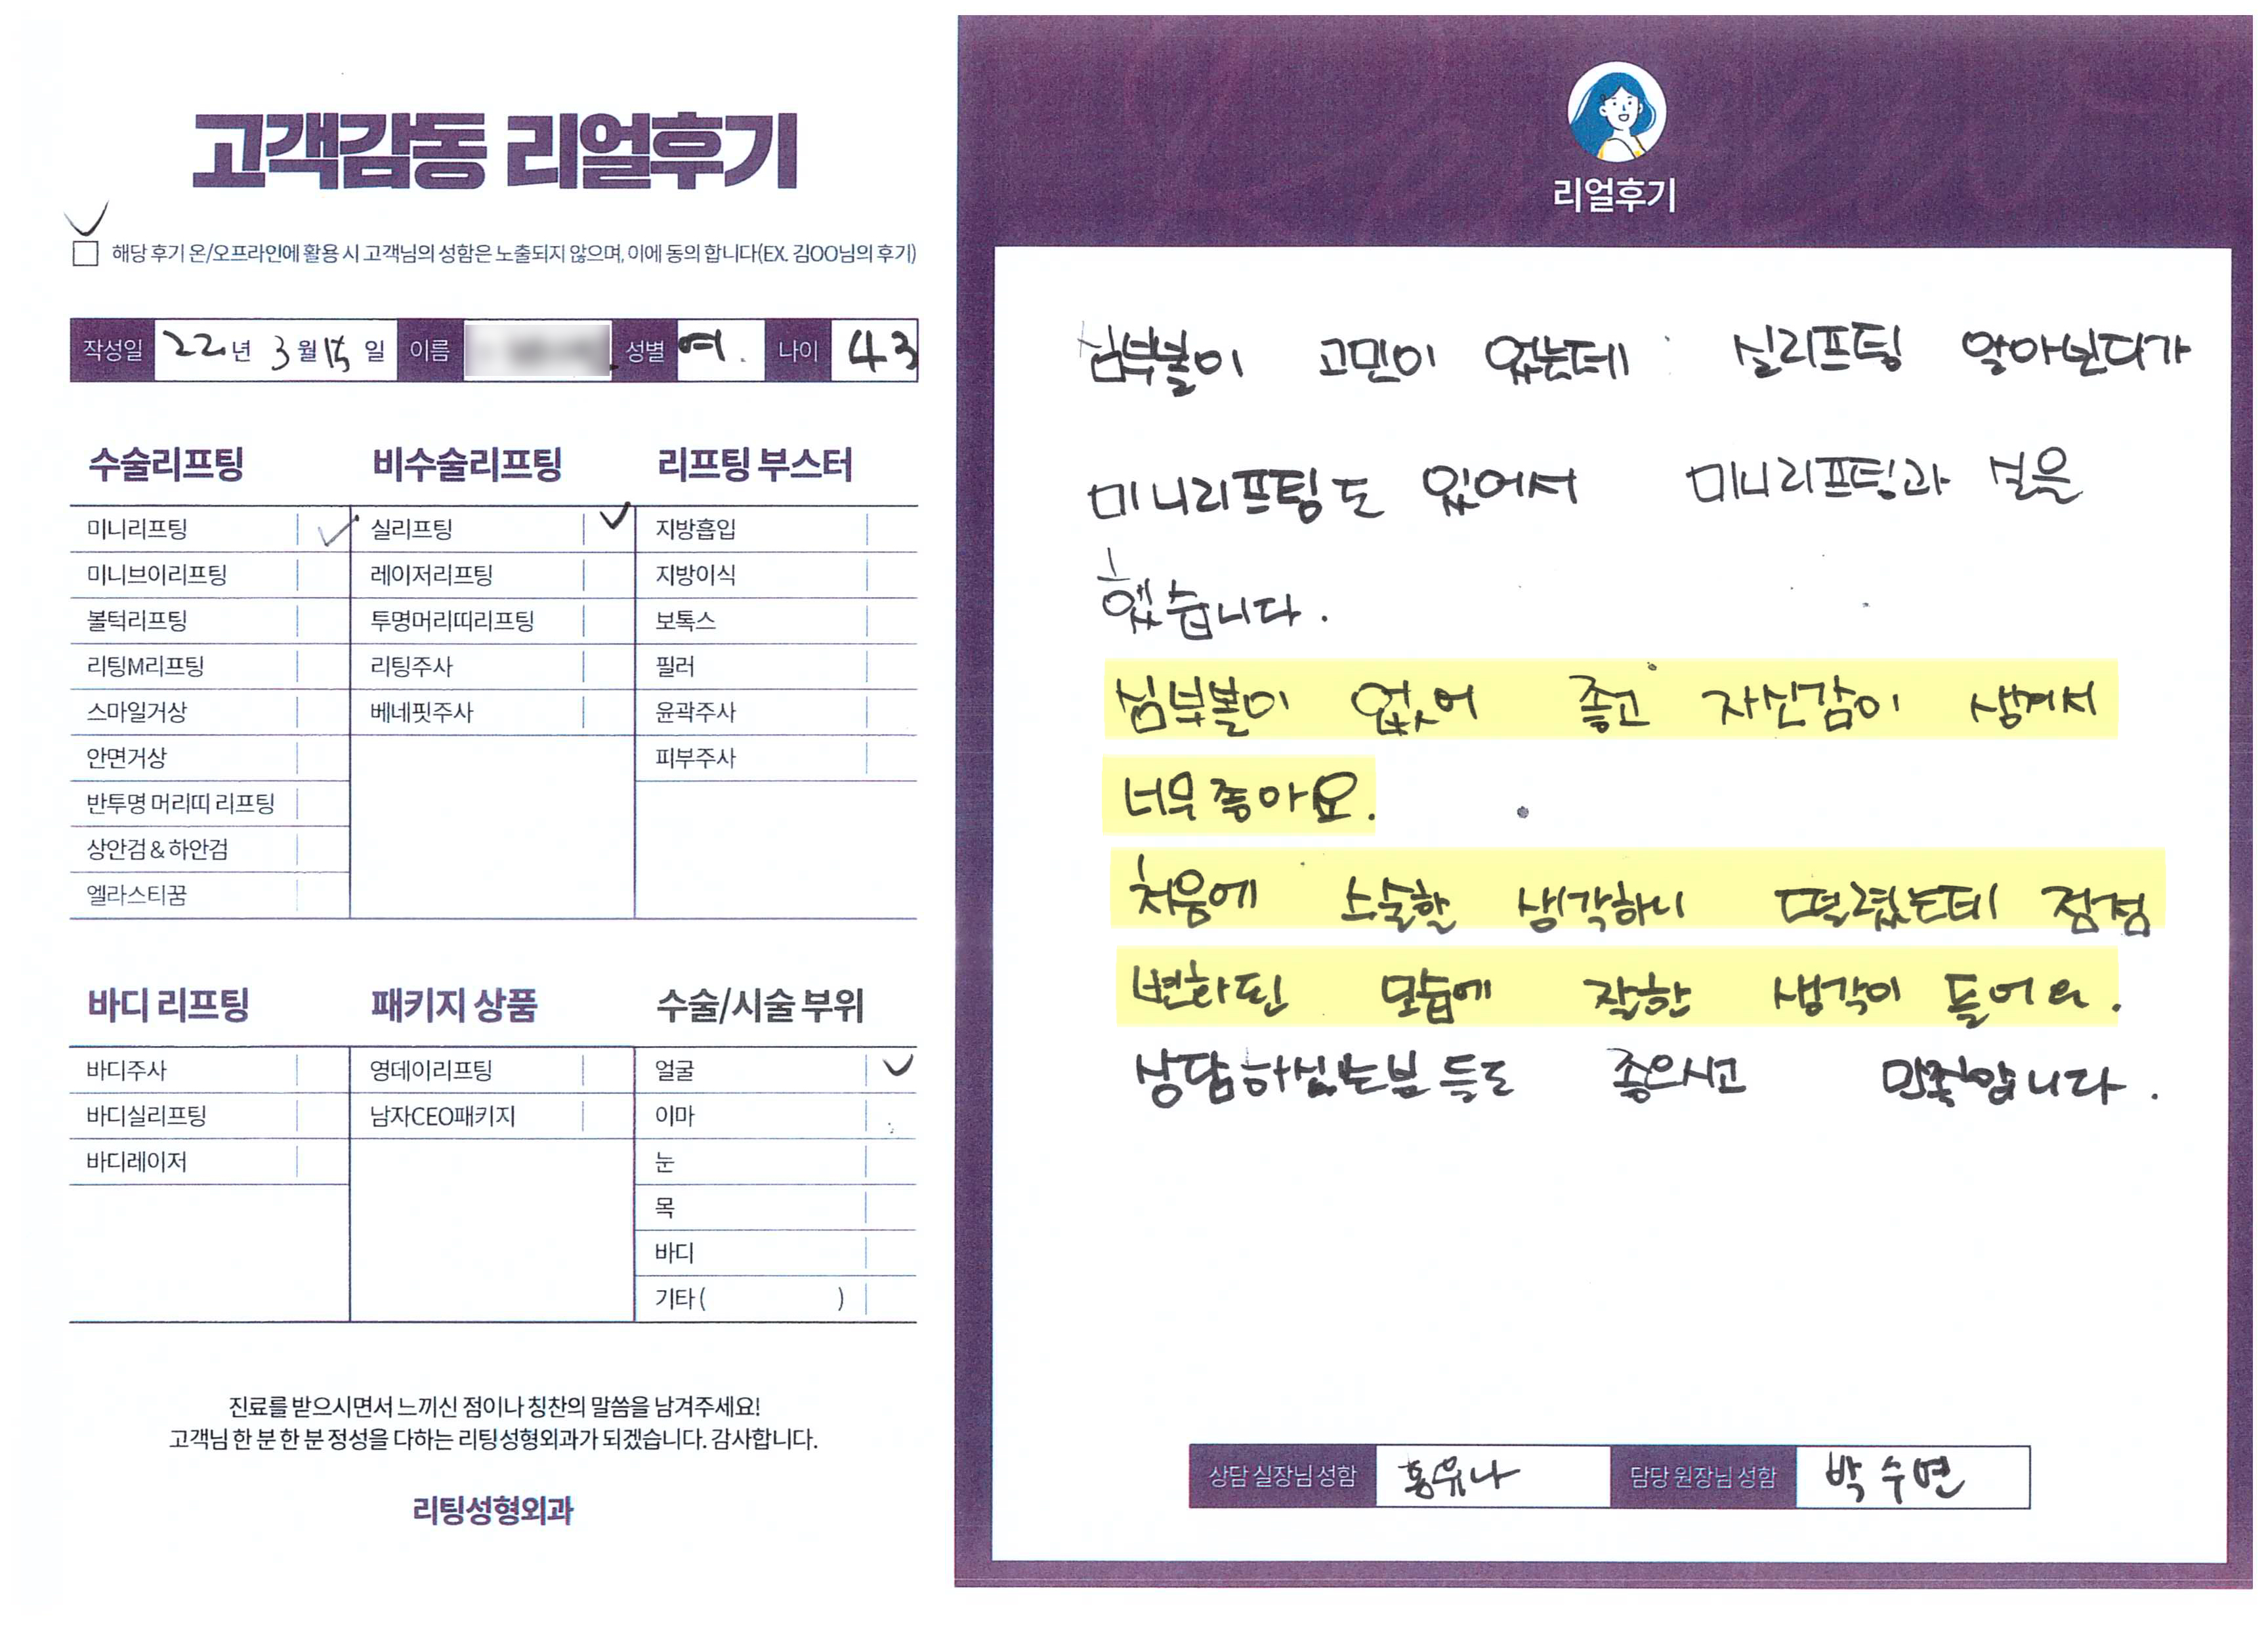 고객감동 리얼후기
해당 후기 온/오프라인에 활용 시 고객님의 성함은 노출되지 않으며, 이에 동의 합니다(EX. 김OO님의 후기)
작성일 22년 3월 15일 이름 성별 여. 나이 43
수술리프팅
미니리프팅
미니브이리프팅
볼턱리프팅
리팅M리프팅
스마일거상
안면거상
반투명 머리띠 리프팅
상안검 & 하안검
엘라스티꿈
비수술리프팅
실리프팅
레이저리프팅
투명머리띠리프팅
리팅주사
베네핏주사
리프팅 부스터
지방흡입
지방이식
보톡스
필러
윤곽주사
피부주사
바디 리프팅
바디주사
바디실리프팅
바디레이저
패키지 상품
영데이리프팅
남자CEO패키지
수술/시술 부위
얼굴
이마
눈
목
바디
기타 ( )
진료를 받으시면서 느끼신 점이나 칭찬의 말씀을 남겨주세요!
고객님 한 분 한 분 정성을 다하는 리팅성형외과가 되겠습니다. 감사합니다.
리팅성형외과
리얼후기
심부볼이 고민이 었는데 실리프팅 알아본다가
미니리프팅도 있어서 미니리프팅과
했습니다.
심부볼이 없어 좋고 자신감이 생겨서
너무 좋아요.
처음에 스술할 생각하니 떨렸는데 점점
변화된 모습에 잘한 생각이 들어요.
상담하신는분들도 좋으시고 만족합니다.
상담 실장님 성함 홍유나 담당 원장님 성함 박수연